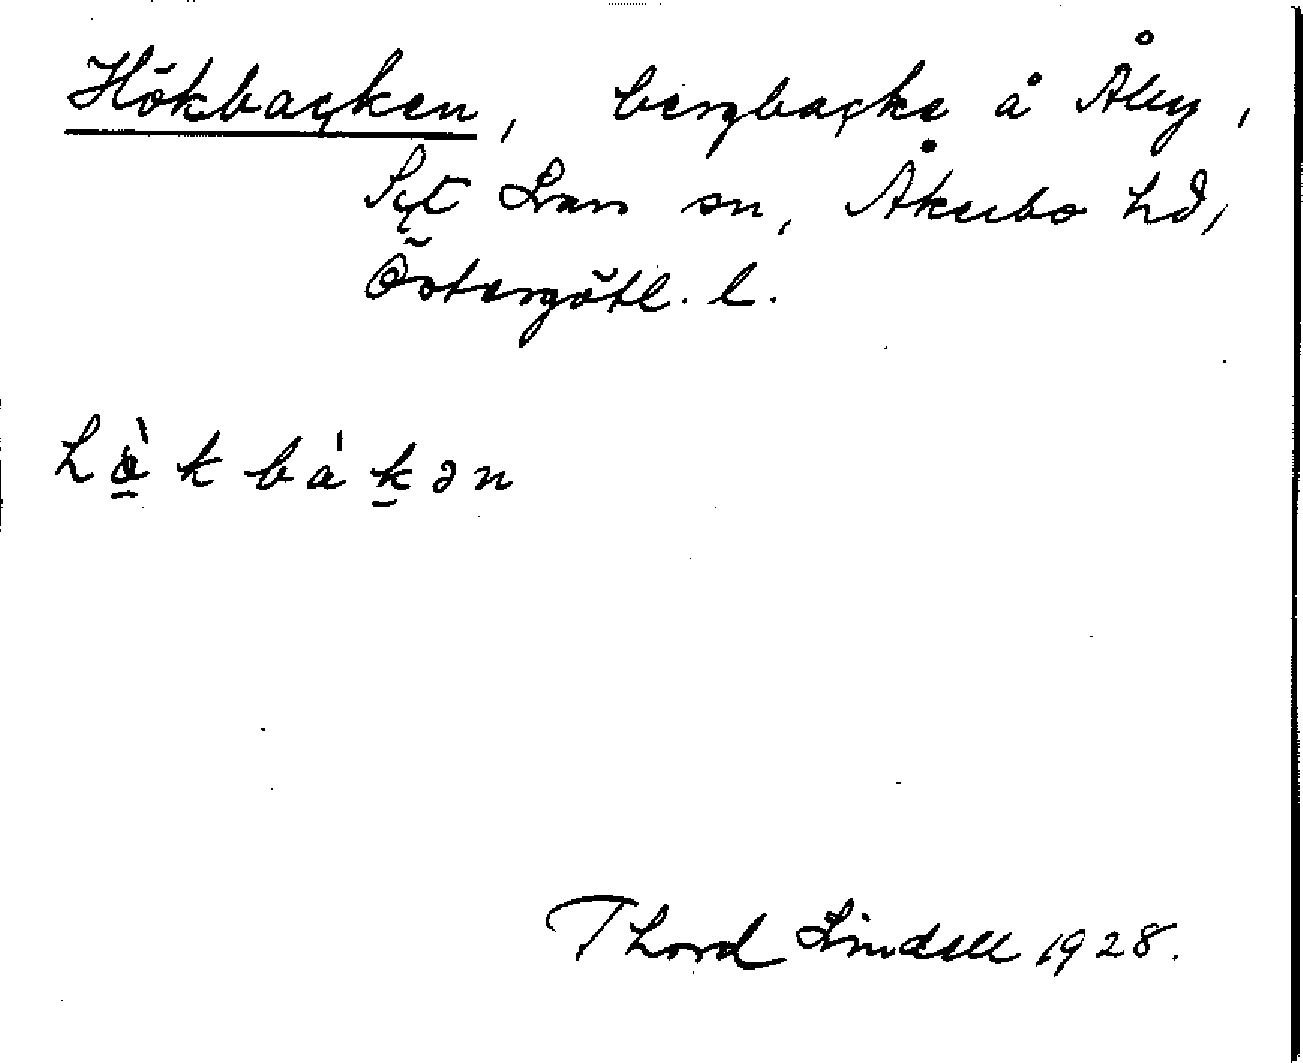 Hökbacken, bergbacke å Åby,
Skt Lars sn, Åkerbo hd,
Östergötl. l.
hø̀k bákən
Thord Lindell 1928.